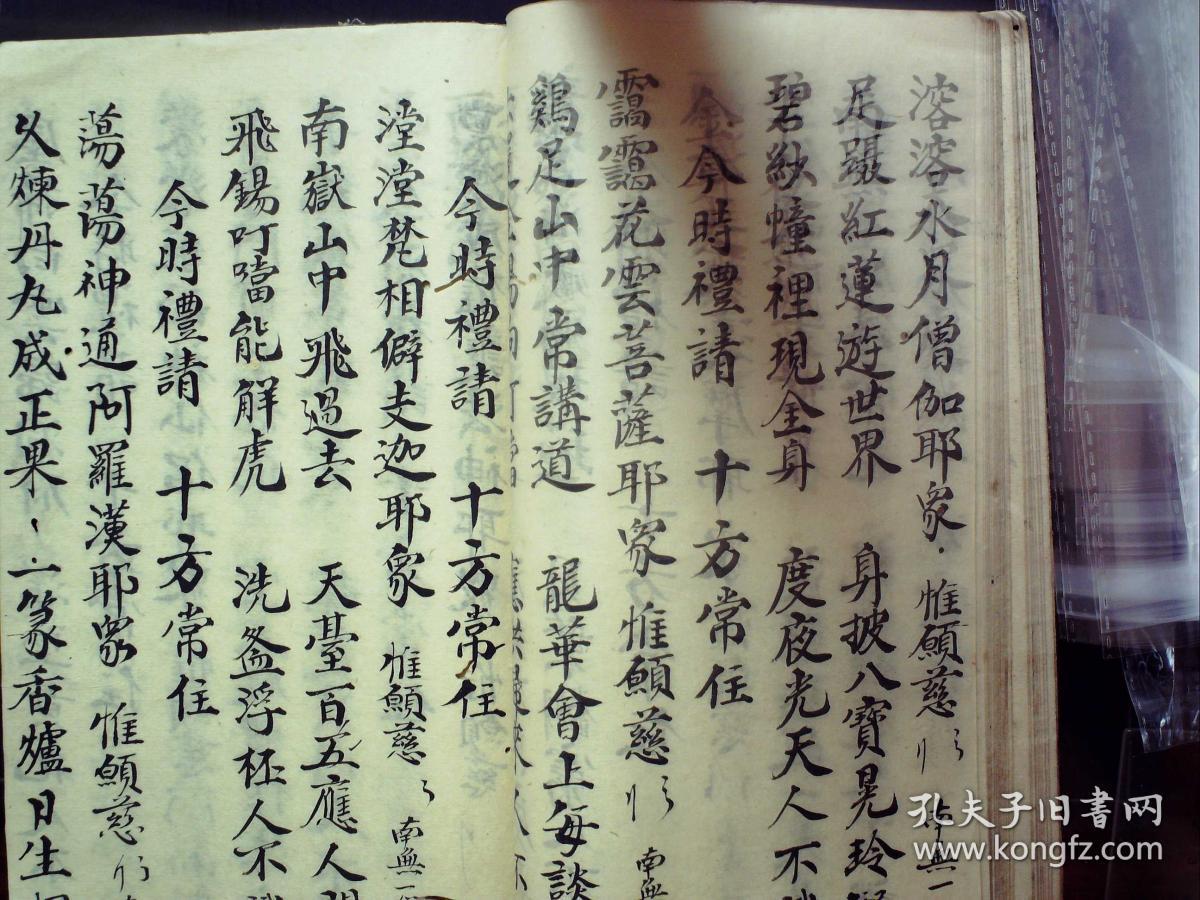 溶溶水月僧伽耶衆 惟願慈 南無一
足躡紅蓮遊世界 身披八寶晃玲
碧紗幢裡現全身 度夜光天人不
金今時禮請 十方常住
靄靄花雲菩薩耶衆 惟願慈 南無
鷄足山中常講道 龍華會上每談
今時禮請 十方常住
滢滢梵相僻支迦耶衆 惟願慈 南無一
南嶽山中飛過去 天臺百五應人間
飛錫叮噹能解虎 洗盋浮杯人不
今時禮請 十方常住
蕩蕩神通阿羅漢耶衆 惟願慈
久煉丹丸成正果 一篆香爐日生
孔夫子旧書网
www.kongfz.com